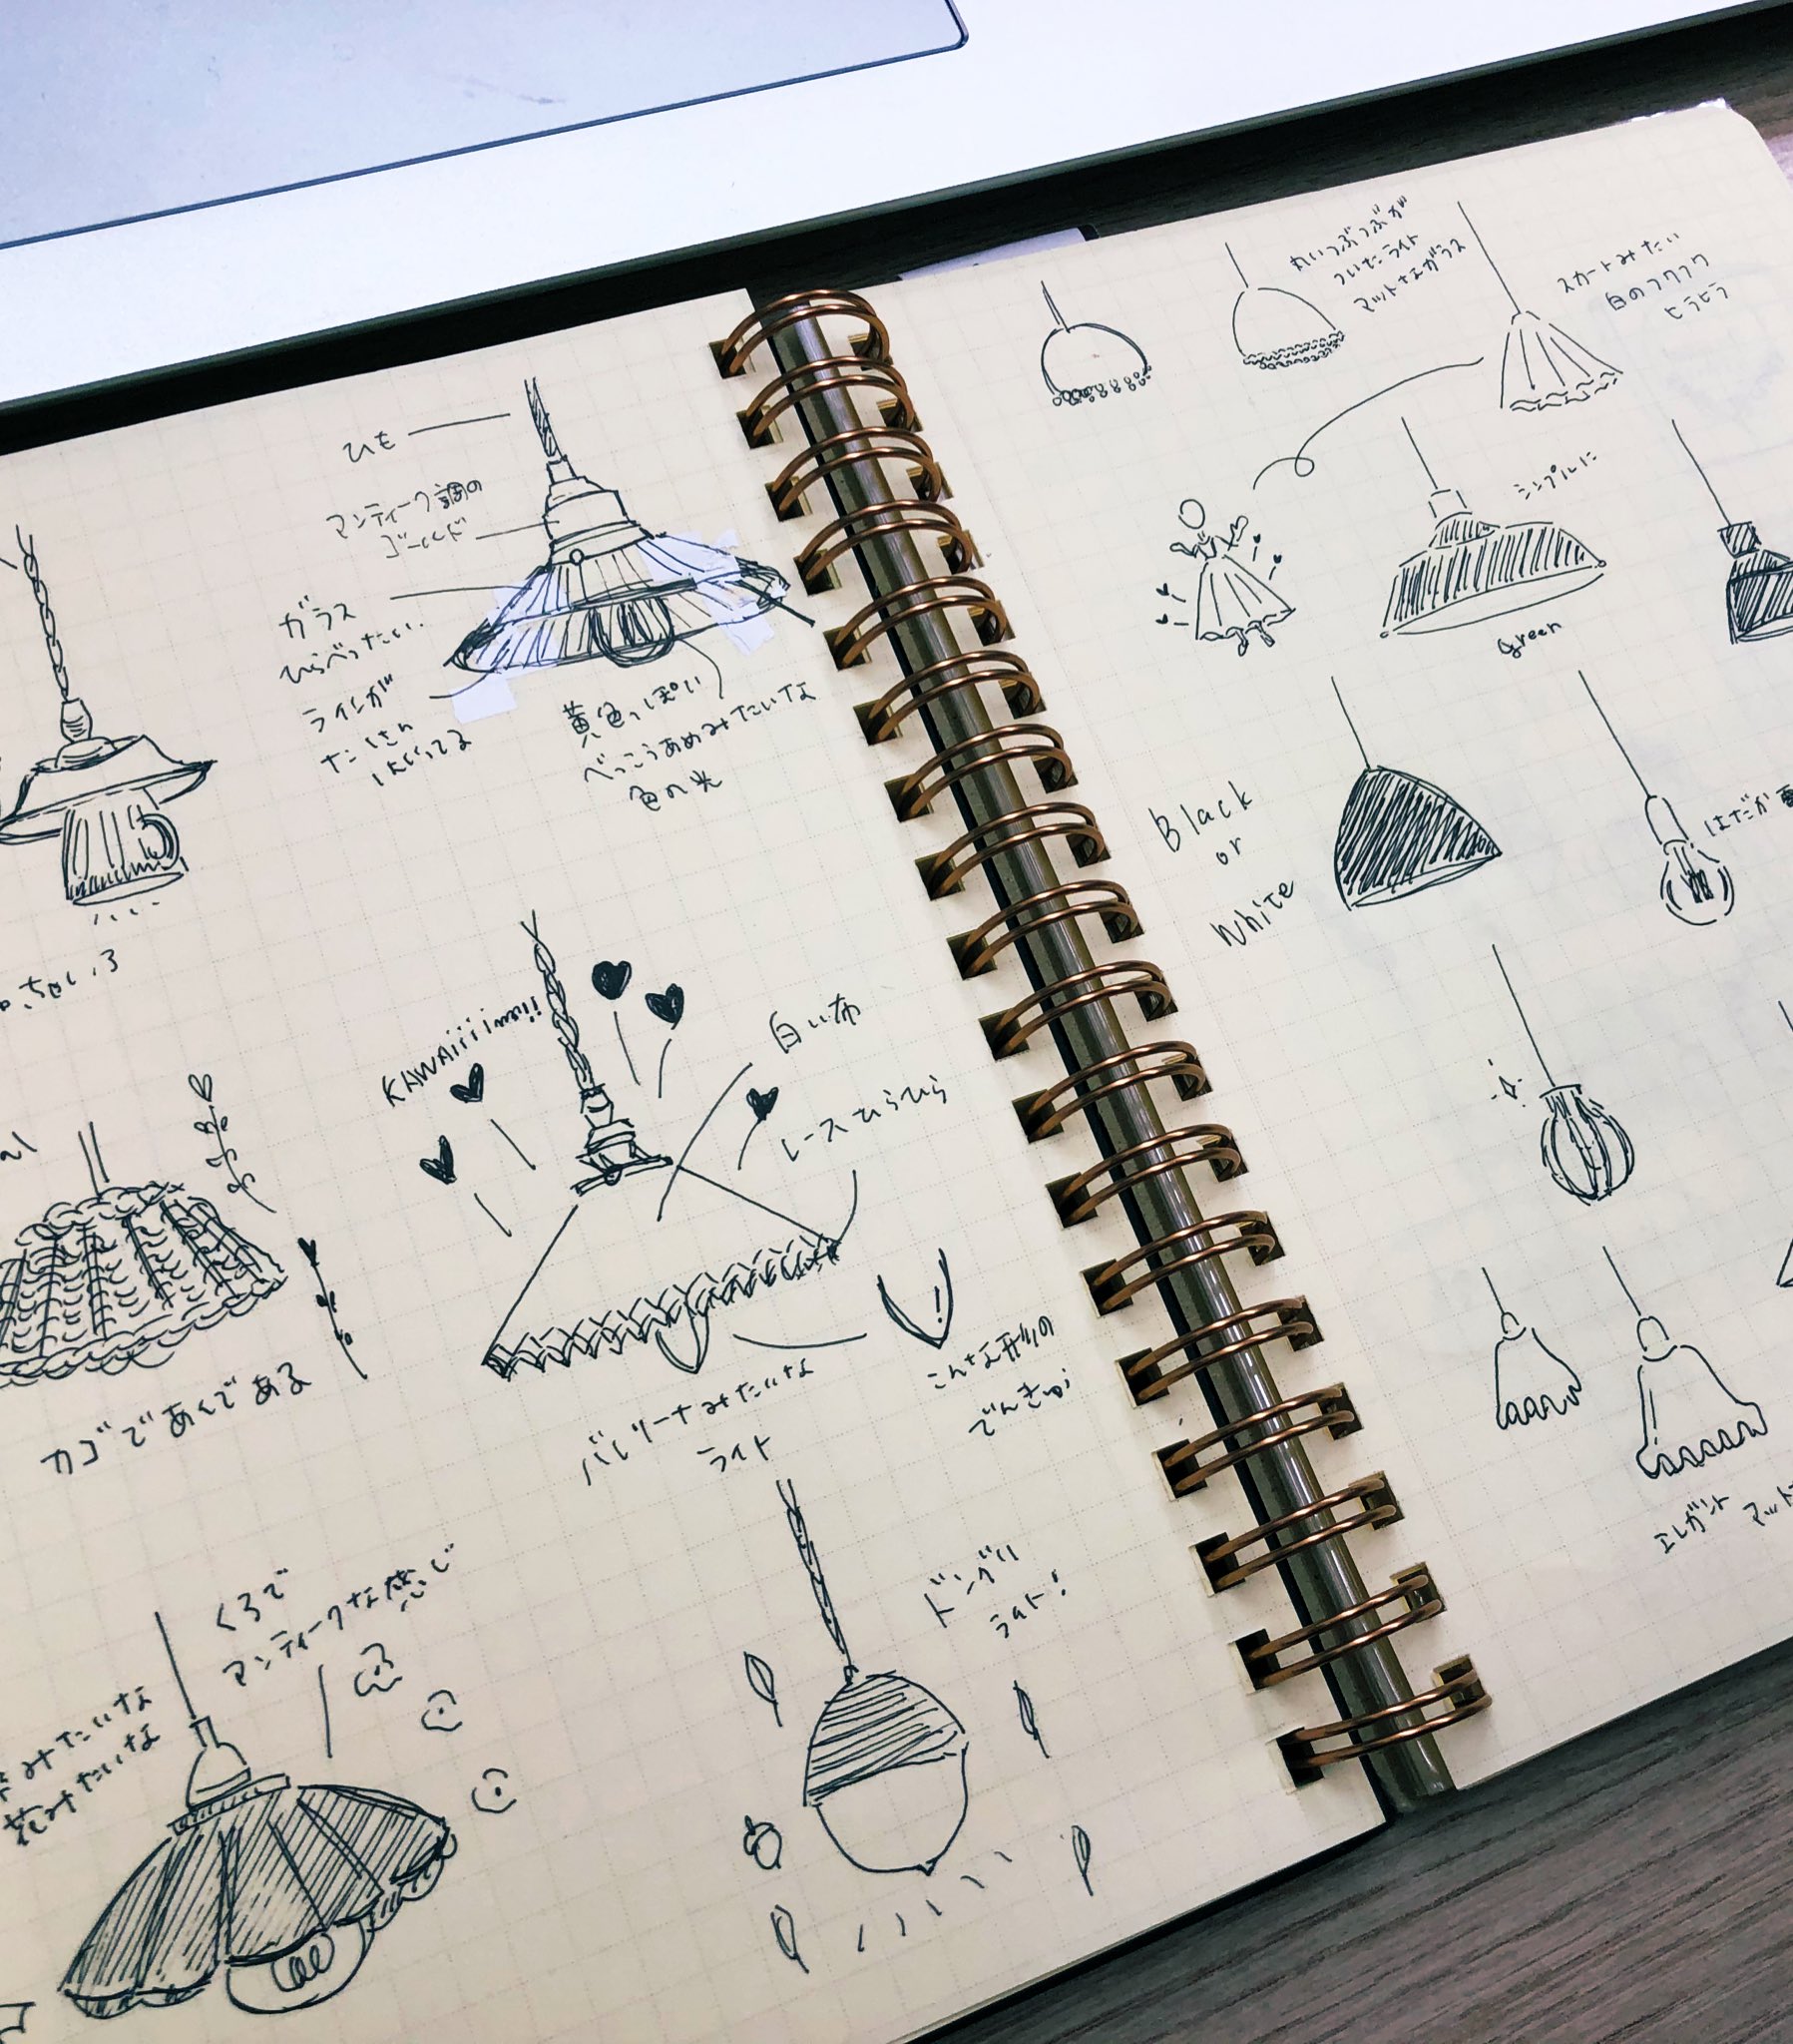 ひも
アンティーク調の
ゴールド
ガラス
ひらべったい
ラインが
たくさん
はいってる
黄色っぽい
べっこうあめみたいな
色の光
KAWAiiiimiii
白い布
レースひらひら
こんな形の
でんきゅう
バレリーナみたいな
ライト
カゴであんである
くろで
アンティークな感じ
みたいな
花みたいな
ドングリ
ライト!
れいつぶつぶが
ついたライト
マットなガラス
スカートみたい
白のフワフワ
ヒラヒラ
シンプルに
green
Black
or
White
はだか
エレガント マット